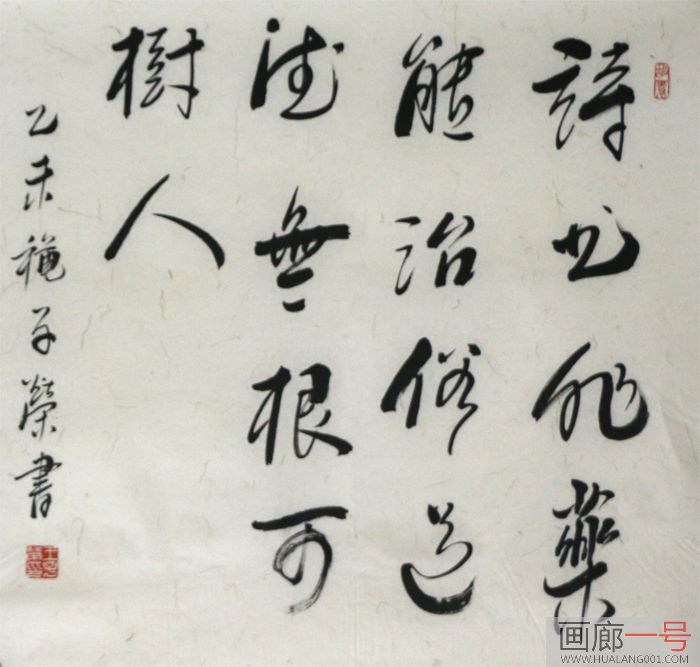 詩书非藥
能治俗道
德無根可
樹人
乙未穐子榮書
画廊一号
WWW.HUALANG001.COM